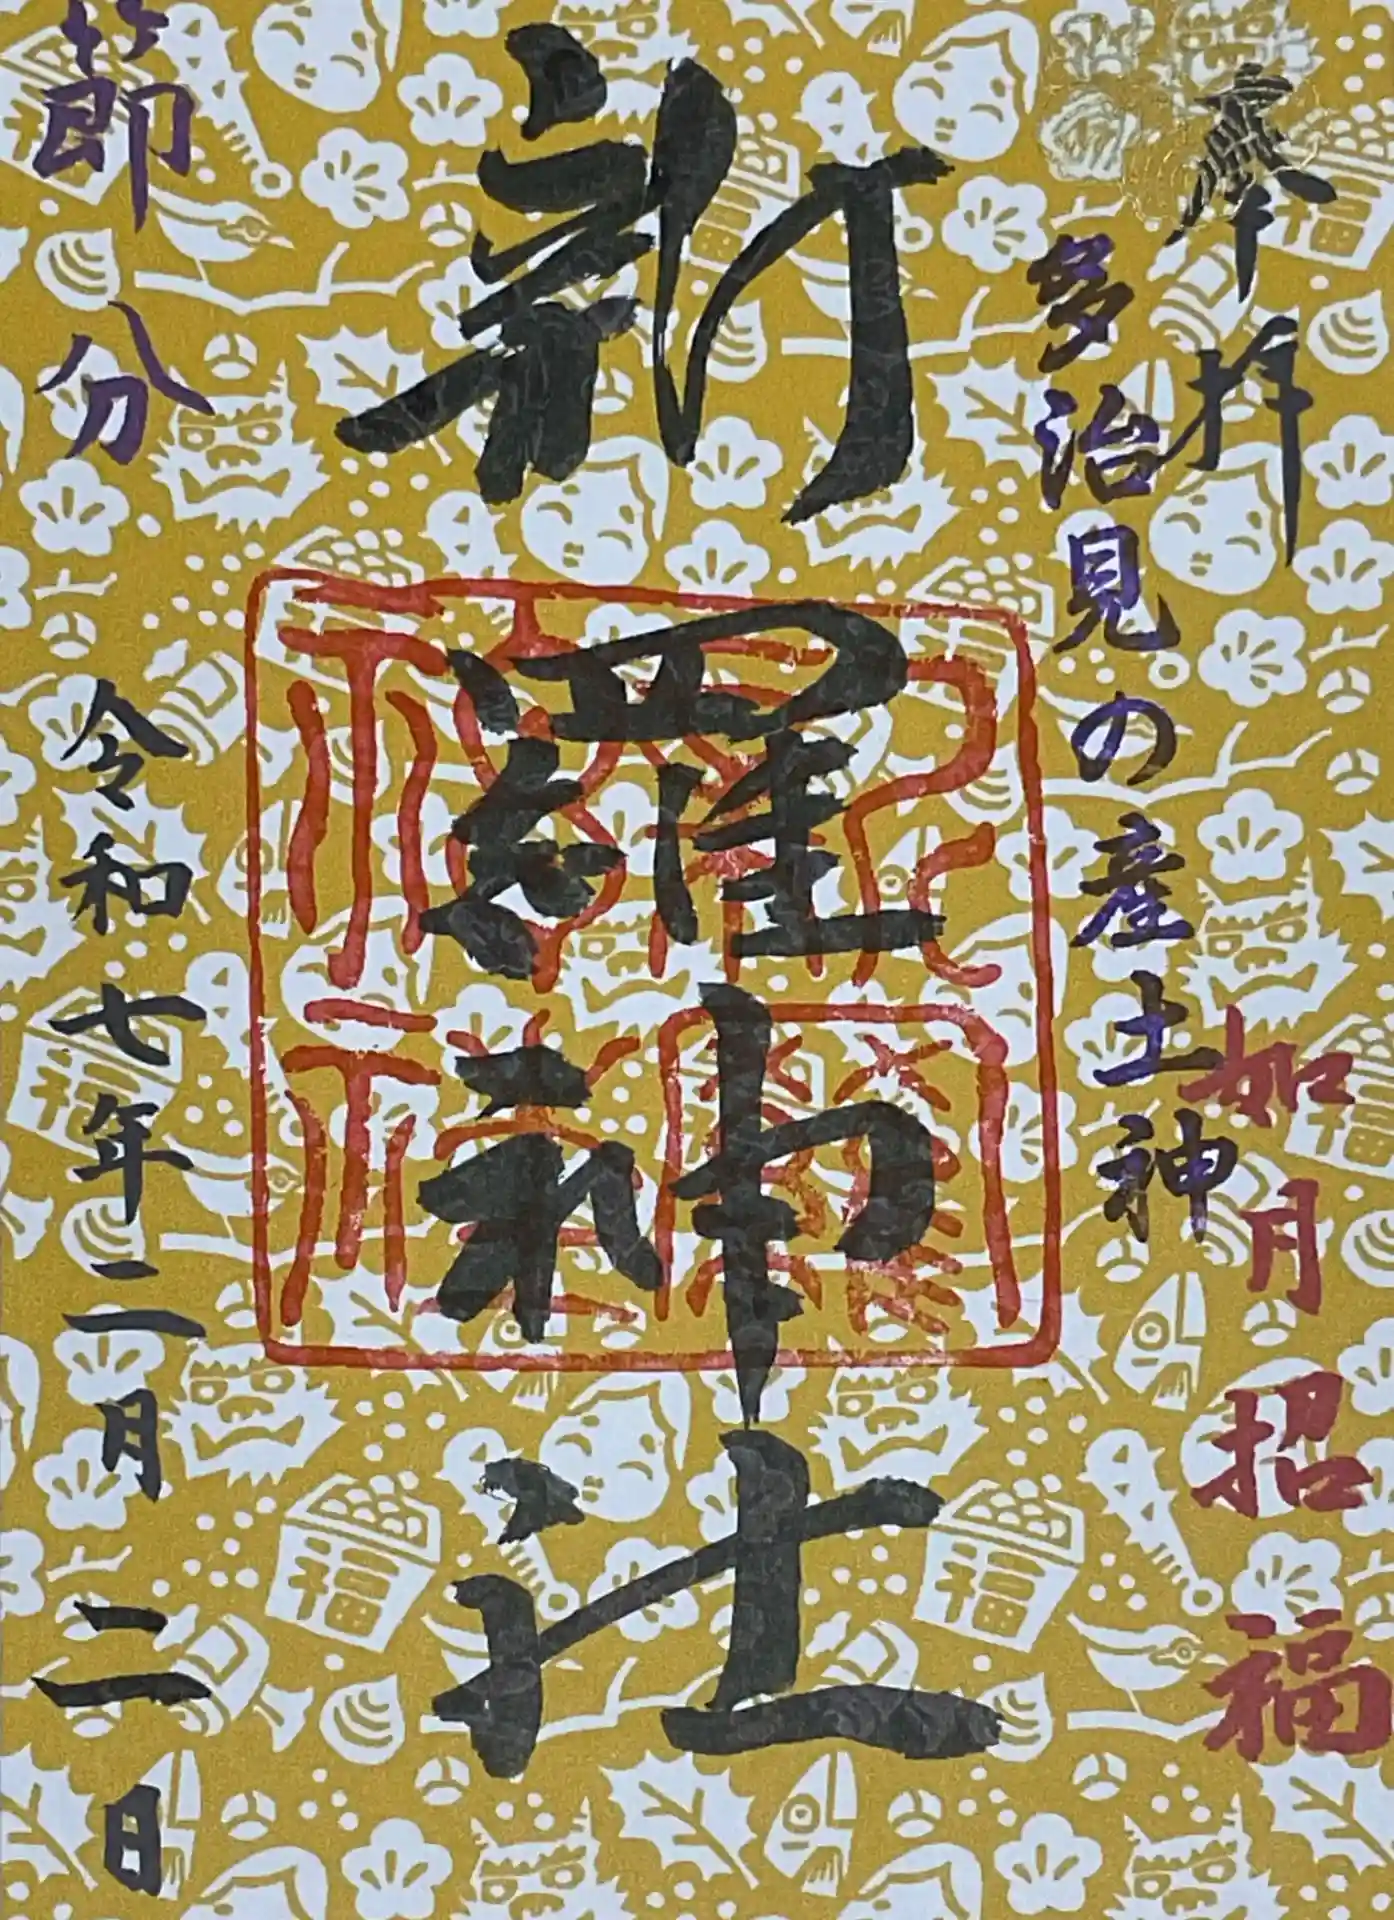 奉拝
如月 招福
多治見の産土神
新羅神社
節分
令和七年二月二日
福
福
福
福
福
福